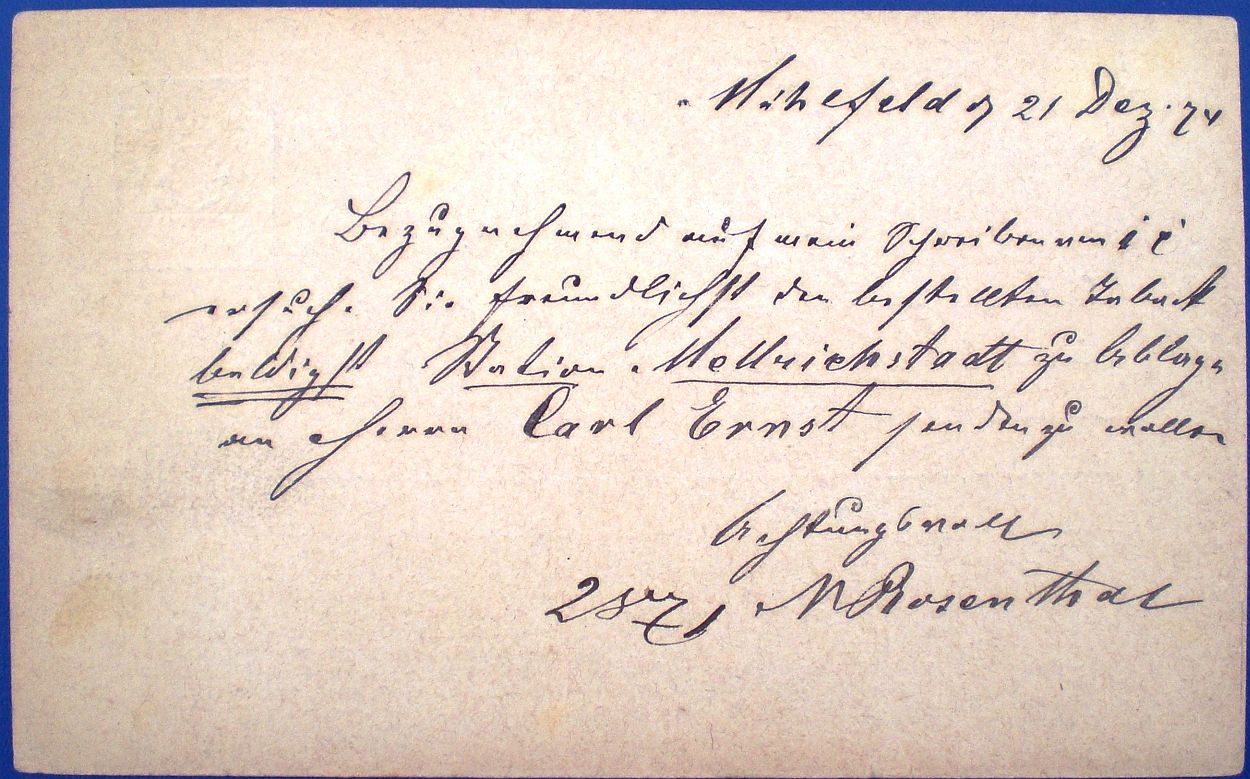 Mühlfeld d 21 Dez. 74
Bezugnehmend auf mein Schreiben vom
ersuche Sie freundlichst den bestellten Taback
baldigst Station Mellrichstadt zu Ablage
an Herrn Carl Ernst senden zu wollen
Achtungsvoll
M Rosenthal